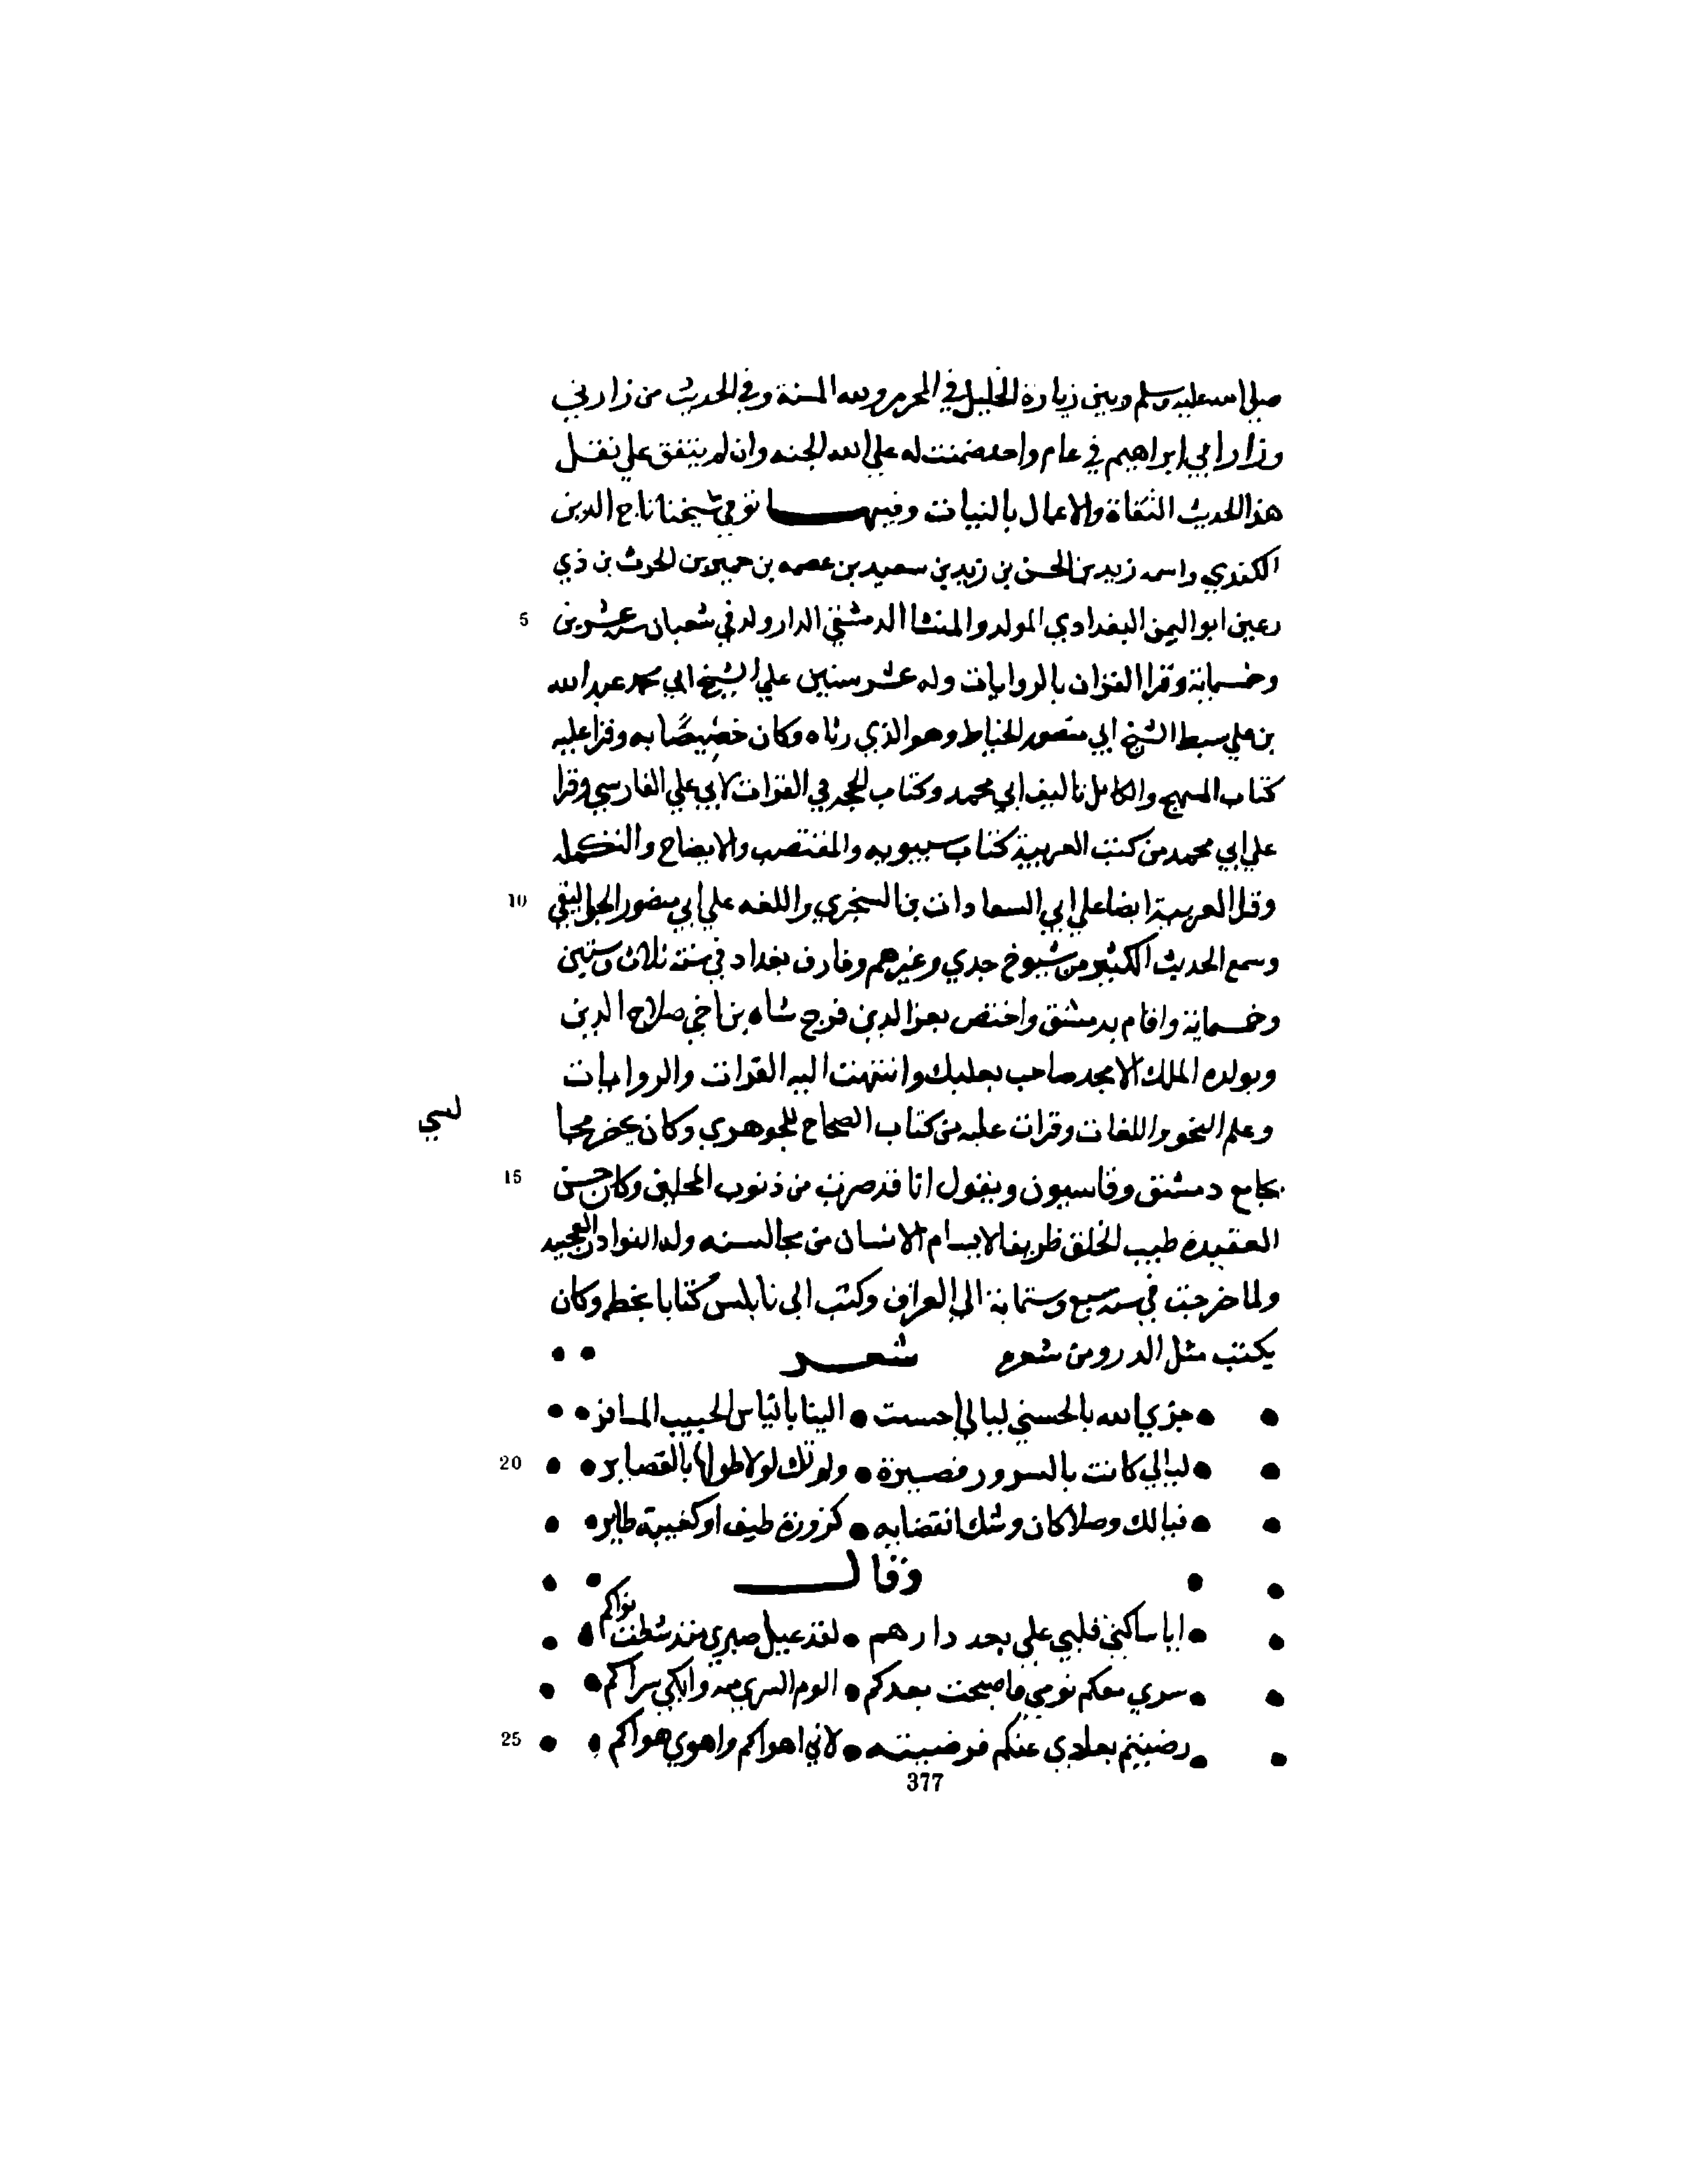 صلي الله عليه وسلم وبين زيارة الخليل في المحرم ولله المنة وفي الحديث من زارني
وزار ابي ابراهيم في عام واحد ضمنت له علي الله الجنه وان لم يتفق علي نقل
هذا الحديث الثقاة والاعمال بالنيات وفيها توفي شيخنا تاج الدين
الكندي واسمه زيد بن الحسن بن زيد بن سعيد بن عصمه بن حمير بن الحرث بن ذي
رعين ابو اليمن البغدادي المولد والمنشا الدمشقي الدار ولد في شعبان سنة عشرين 5
وخمسماية وقرا القران بالروايات وله عشر سنين علي الشيخ ابي محمد عبد الله
بن علي سبط الشيخ ابي منصور الخياط وهو الذي رباه وكان خصيصًا به وقرا عليه
كتاب المبهج والكامل تاليف ابي محمد وكتاب الحجه في القرات لابي علي الفارسي وقرا
علي ابي محمد من كتب العربية كتاب سيبويه والمقتضب والايضاح والتكمله
وقرا العربية ايضا علي ابي السعادات بن الشجري واللغه علي ابي منصور الجواليقي 10
وسمع الحديث الكثير من شيوخ جدي وغيرهم وفارق بغداد في سنة ثلاث وستين
وخمسماية واقام بدمشق واختص بعز الدين فرج شاه بن اخي صلاح الدين
وبولده الملك الامجد صاحب بعلبك وانتهت اليه القرات والروايات
وعلم النحو واللغات وقرات عليه من كتاب الصحاح للجوهري وكان يحضر مجا لسي
بجامع دمشق وقاسيون ويقول انا قد صرت من ذنوب المجلس وكان حسن 15
العقيدة طيب الخلق ظريفا لا يسام الانسان من مجالسته وله النوادر العجيبه
ولما خرجت في سنة سبع وستماية الي العراق وكتب الى نابلس كتابا بخطه وكان
يكتب مثل الدر ومن شعره شعر
جزي الله بالحسني ليالي احسنت • الينا بايناس الحبيب المسافر
ليالي كانت بالسرور قصيرة • ولم تك لولا طولها بالقصاير 20
فيالك وصلا كان وشك انقضايه • كزورة طيف او كغبية طاير
وقال
ايا ساكني قلبي علي بعد دارهم • لقد عيل صبري منذ شطت نواكم
سري معكم نومي فاصبحت بعدكم • الوم السري منه وابكي سراكم
رضيتم بعادي عنكم فرضيته • لاني اهواكم واهوي هواكم 25
377